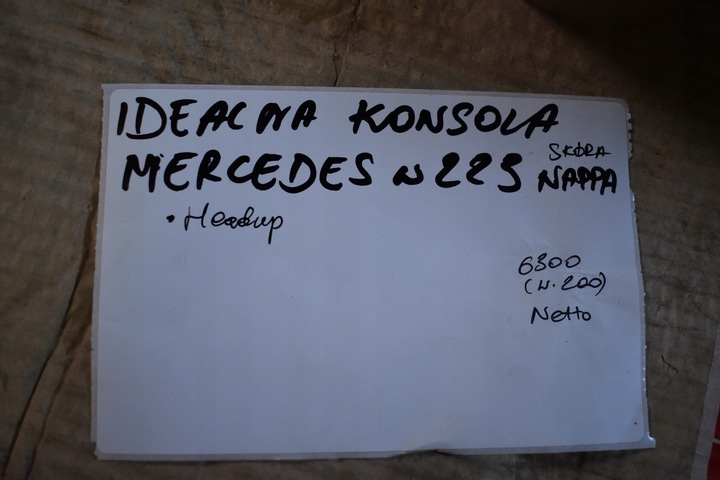 IDEALNA KONSOLA
MERCEDES W223 SKÓRA NAPPA
• Headup
6300
(W.200)
Netto